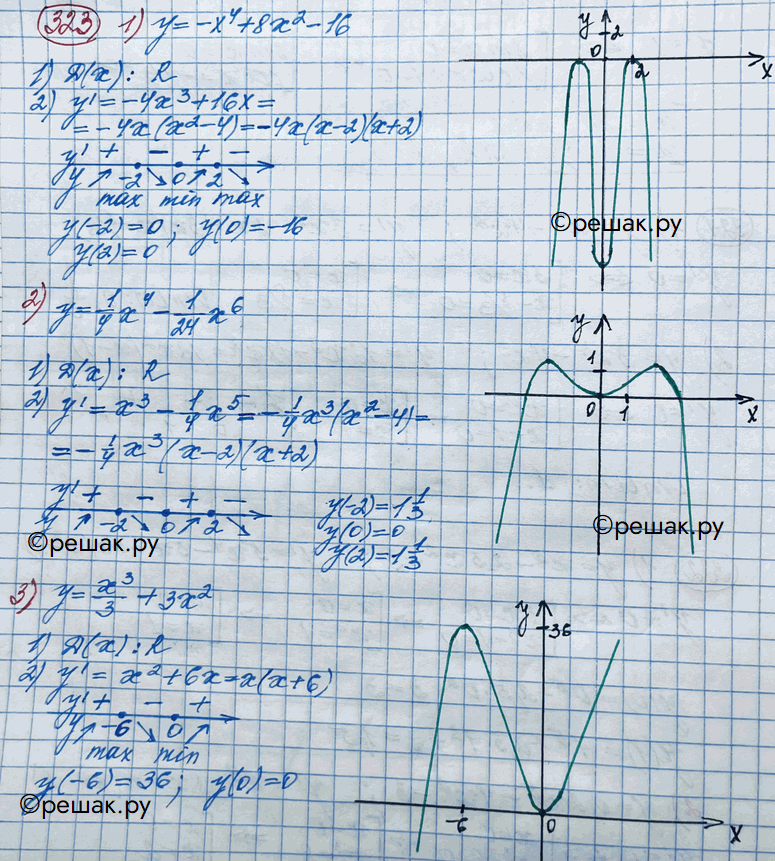 323 1) y = -x⁴ + 8x² - 16
1) D(x): R
2) y' = -4x³ + 16x =
= -4x(x² - 4) = -4x(x-2)(x+2)
y' + - + -
y ↗ -2 ↘ 0 ↗ 2 ↘
max min max
y(-2) = 0; y(0) = -16
y(2) = 0
y 2
0 2 x
©решак.ру
2) y = 1/4 x⁴ - 1/24 x⁶
1) D(x): R
2) y' = x³ - 1/4 x⁵ = -1/4 x³(x² - 4) =
= -1/4 x³(x-2)(x+2)
y' + - + -
y ↗ -2 ↘ 0 ↗ 2 ↘
©решак.ру
y(-2) = 1 1/3
y(0) = 0
y(2) = 1 1/3
y
1
0 1 x
©решак.ру
3) y = x³/3 + 3x²
1) D(x): R
2) y' = x² + 6x = x(x+6)
y' + - +
y ↗ -6 ↘ 0 ↗
max min
y(-6) = 36; y(0) = 0
©решак.ру
y
36
-6 0 x